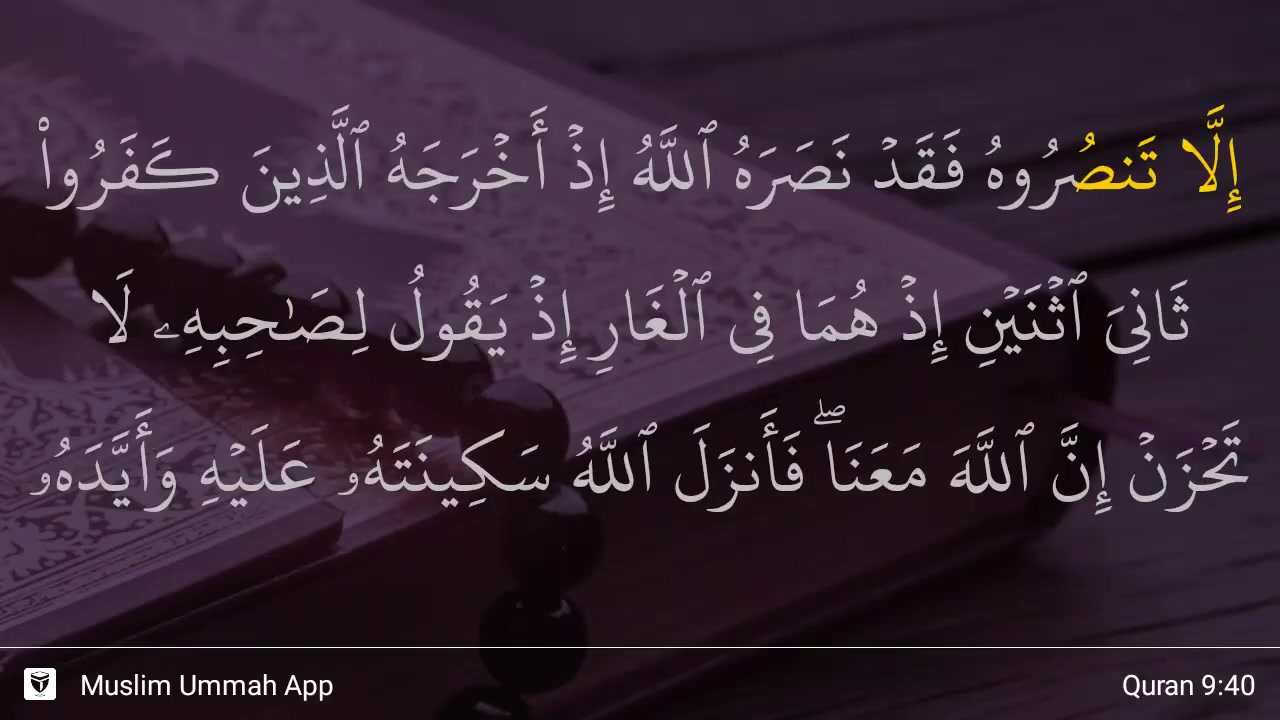 إِلَّا تَنصُرُوهُ فَقَدۡ نَصَرَهُ ٱللَّهُ إِذۡ أَخۡرَجَهُ ٱلَّذِينَ كَفَرُواْ
ثَانِيَ ٱثۡنَيۡنِ إِذۡ هُمَا فِي ٱلۡغَارِ إِذۡ يَقُولُ لِصَٰحِبِهِۦ لَا
تَحۡزَنۡ إِنَّ ٱللَّهَ مَعَنَاۖ فَأَنزَلَ ٱللَّهُ سَكِينَتَهُۥ عَلَيۡهِ وَأَيَّدَهُۥ
Muslim Ummah App
Quran 9:40